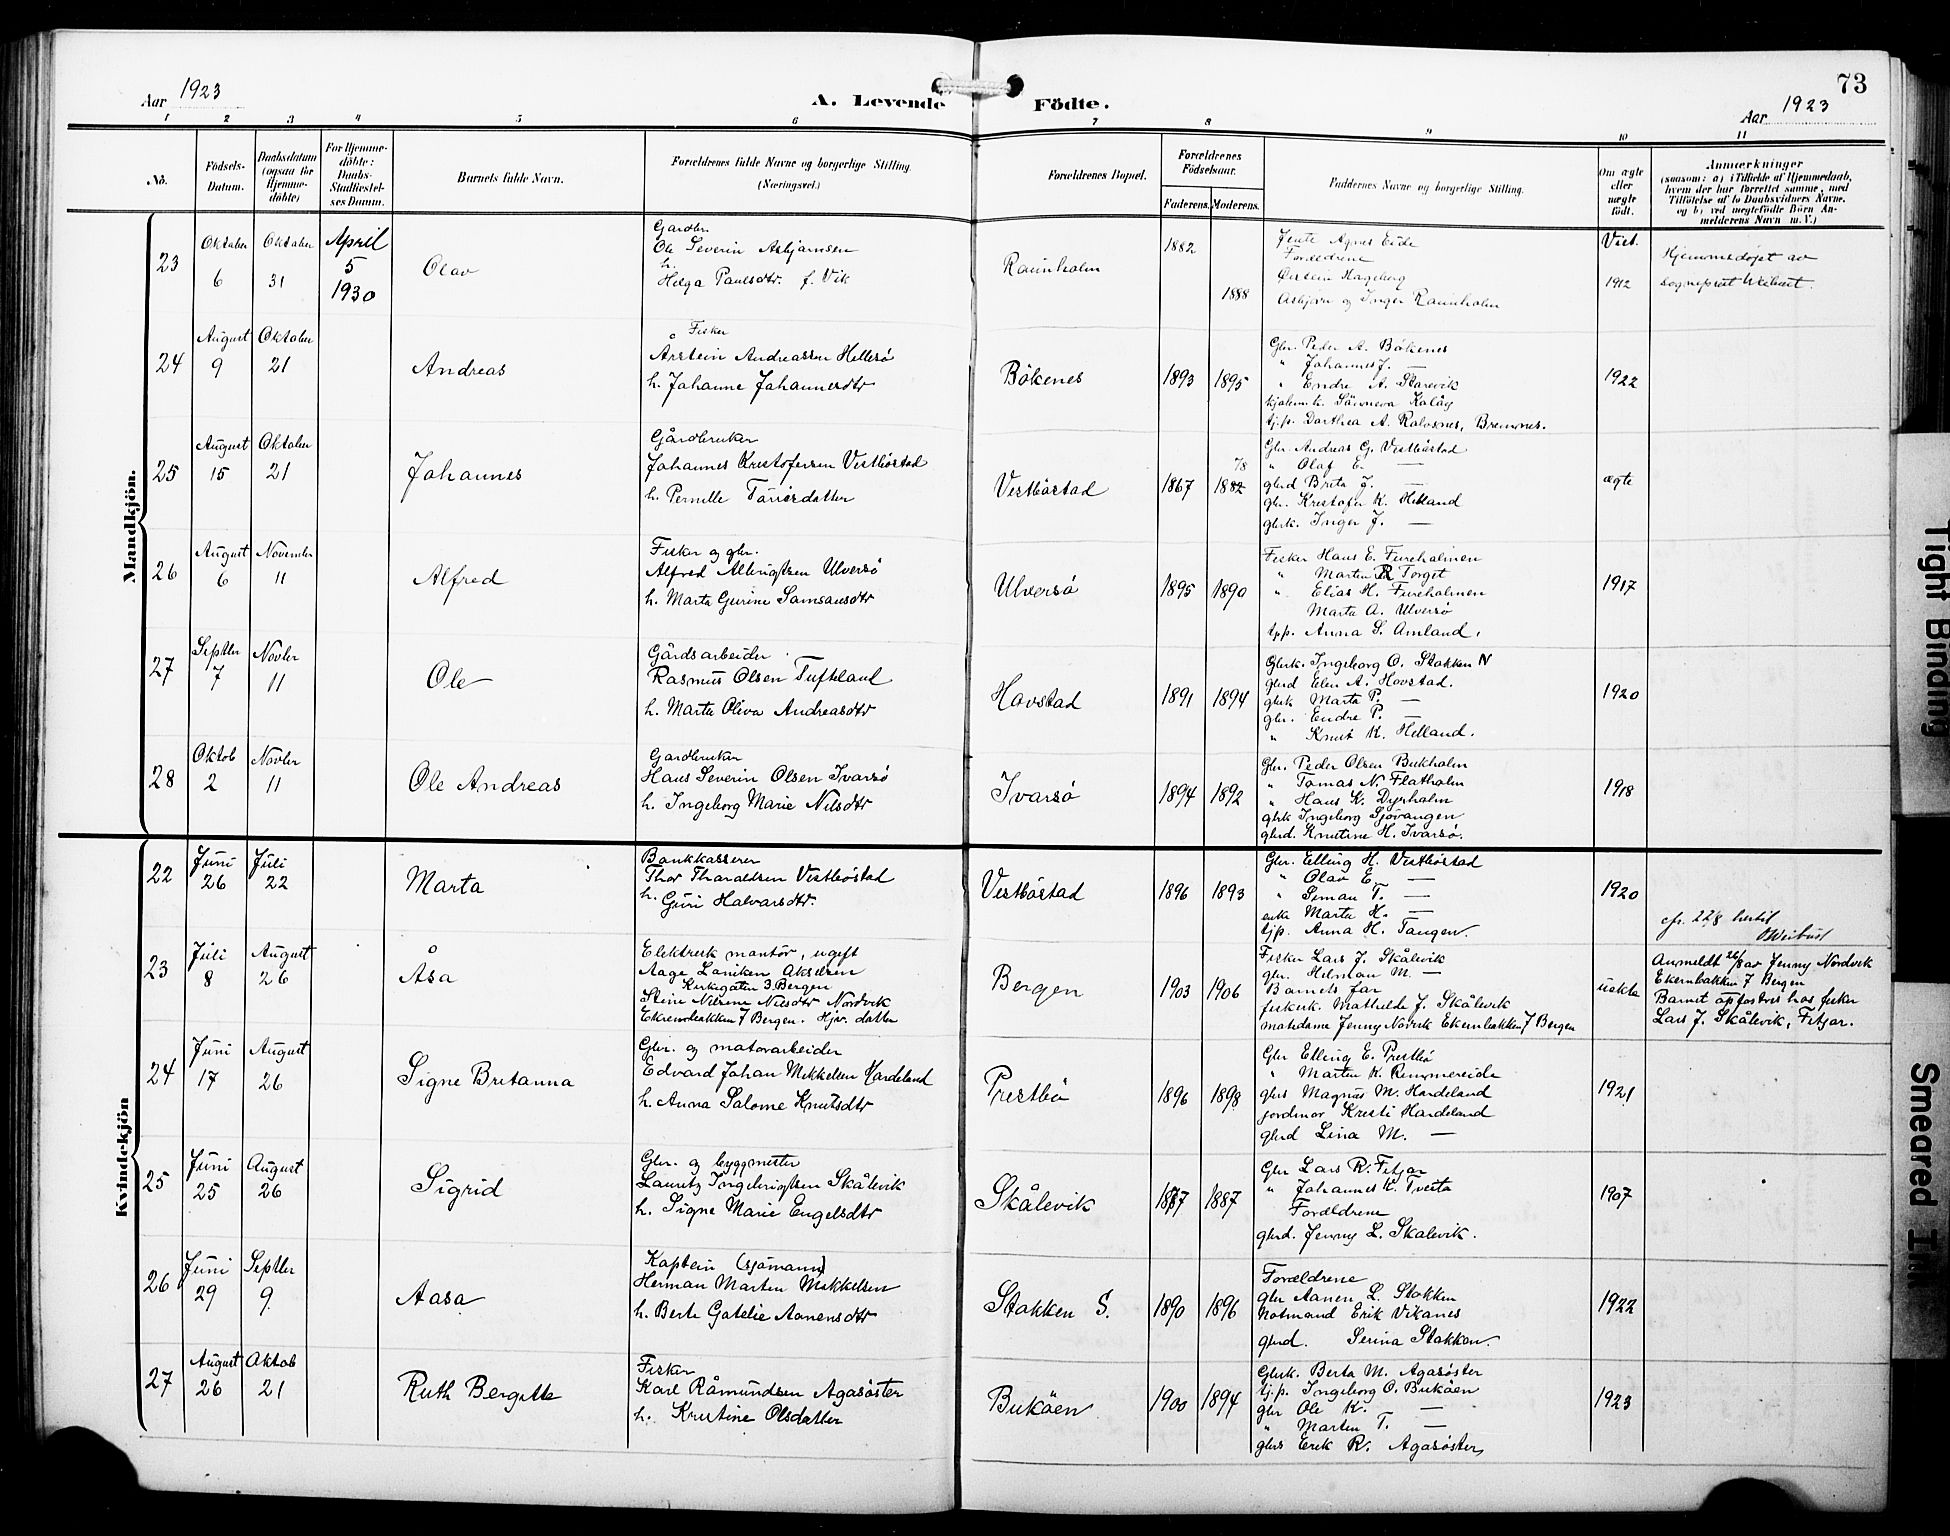 Aar 1923
A. Levende Födte.
73
Aar 1923
1 2 3 4 5 6 7 8 9 10 11
No.
Födsels-Datum.
Daabsdatum (ogsaa for Hjemme-döbte)
For Hjemme-döbte: Daabs-Stadfæstel-ses Datum.
Barnets fulde Navn.
Forældrenes fulde Navne og borgerlige Stilling. (Næringsvei.)
Forældrenes Bopæl.
Forældrenes Födselsaar.
Faderens. Moderens.
Faddernes Navne og borgerlige Stilling.
Om ægte eller uægte födt.
Anmærkninger
(saasom: a) i Tilfælde af Hjemmedaab,
hvem der har forrettet samme, med
Tilföielse af to Daabsvidners Navne.
og b) ved uægtefödte Börn An-
melderens Navn m. V.)
Mandkjön.
23
Oktober 6
Oktober 31
April 5 1930
Olav
Gardbr.
Ole Severin Asbjørnsen
h.
Helga Paulsdtr. f. Vik
Raunholm
1882
1888
Jente Agnes Eide
Forældrene
Øistein Hageberg
Asbjørn og Inger Raunholm
Viet. 1912
Hjemmedøpt av
sogneprest Weibust.
24
August 9
Oktober 21
Andreas
Fisker
Årstein Andreassen Hellesø
h. Johanne Johannesdtr
Bökenes
1893
1895
Gbr. Peder A. Bökenes
" Johannes J. —
" Endre A. Skarevik
tj.p. Dorthea A. Kalvsnes, Bremnes.
1922
25
August 15
Oktober 21
Johannes
Gårdbruker
Johannes Kristofersen Vestbøstad
h. Pernille Tørrisdatter
Vestbøstad
1867
1882
78
Gbr. Andreas G. Vestbøstad
" Olaf E. —
gbrd Brita J. —
gbr. Kristofer K. Helland
gbrk. Inger J. —
ægte
26
August 6
November 11
Alfred
Fisker og gbr.
Alfred Albrigtsen Ulversø
h. Marta Gurine Samsonsdtr
Ulversø
1895
1890
Fisker Hans E. Fureholmen
" Martin R Torget
" Elias H. Fureholmen
Marta A. Ulversø
tpp. Anna S. Amland.
1917
27
Septber 7
Novber 11
Ole
Gårdsarbeider
Rasmus Olsen Tufteland
h. Marta Oliva Andreasdtr
Hovstad
1891
1894
Gbrk. Ingeborg O. Stokken N
gbrd Elen A. Hovstad.
gbrk Marta P. —
gbr. Endre P. —
" Knut K. Helland.
1920
28
Oktob 2
Novber 11
Ole Andreas
Gardbruker
Hans Severin Olsen Ivarsø
h. Ingeborg Marie Nilsdtr
Ivarsø
1894
1892
Gbr. Peder Olsen Bukholm
" Tomas N. Flatholm
" Hans K. Dyrholm
gbrk Ingeborg Sjövangen
gbrd. Knutine H. Ivarsø.
1918
Kvindekjön
22
Juni 26
Juli 22
Marta
Bankkasserer
Thor Tharaldsen Vestbøstad
h. Guri Halvorsdtr.
Vestbøstad
1896
1893
Gbr. Elling H. Vestbøstad
" Olav E. —
" Simon T. —
enke Marta H. —
tjp. Anna H. Tangen.
1920
23
Juli 8
August 26
Åsa
Elektrisk montør, ugift
Aage Laniken Akselsen
Kirkegaten 3. Bergen
Stine Nilsine Nilsdtr Nordvik
Ekrenbakken 7 Bergen. Hjv. datter
Bergen
1903
1906
Fisker Lars J. Skålevik
gbr. Hilman M. —
Barnets far
fiskerk. Mathilde J. Skålevik
madame Jenny Nordvik Ekrenbakken 7 Bergen
uekte
cfr. 22/8 hertil
OWeibust
Anmeldt 26/8 av Jenny Nordvik
Ekernbakken 7 Bergen
Barnet opfostres hos fisker
Lars J. Skålevik, Fitjar.
24
Juni 17
August 26
Signe Britanna
Gbr. og motorarbeider
Edvard Johan Mikkelsen Hardeland
h. Anna Salome Knutsdtr
Prestbö
1896
1898
Gbr Elling E. Prestbø
" Martin K. Rimmereide
gbrs Magnus M. Hardeland
jordmor Kristi Hardeland
gbrd Lina M. —
1921
25
Juni 25
August 26
Sigrid
Gbr. og byggmester
Lauritz Ingebrigtsen Skålevik
h. Signe Marie Engelsdtr
Skålevik
1887
1887
Gbr Lars R. Fitjar
" Johannes K. Tveita
Forældrene
gbrd. Jenny L. Skålevik.
1907
26
Juni 29
Septber 9.
Aasa
Kaptein (sjömann)
Herman Martin Mikkelsen
h. Berte Gotelie Aanensdtr
Stokken S.
1890
1896
Forældrene
gbr Aanen L. Stokken
Notmand Erik Vikanes
gbrd. Serina Stokken.
1922
27
August 26
Oktob 21
Ruth Bergitte
Fisker
Karl Råmundsen Agasøster
h. Kristine Olsdatter
Buköen
1900
1894
Gbrk. Berta M. Agasøster
tj.p. Ingeborg O. Bukøen
gbr Ole K. —
" Martin T. —
gbrs Erik R. Agasøster
1923
Tight Binding
Smeared Ink